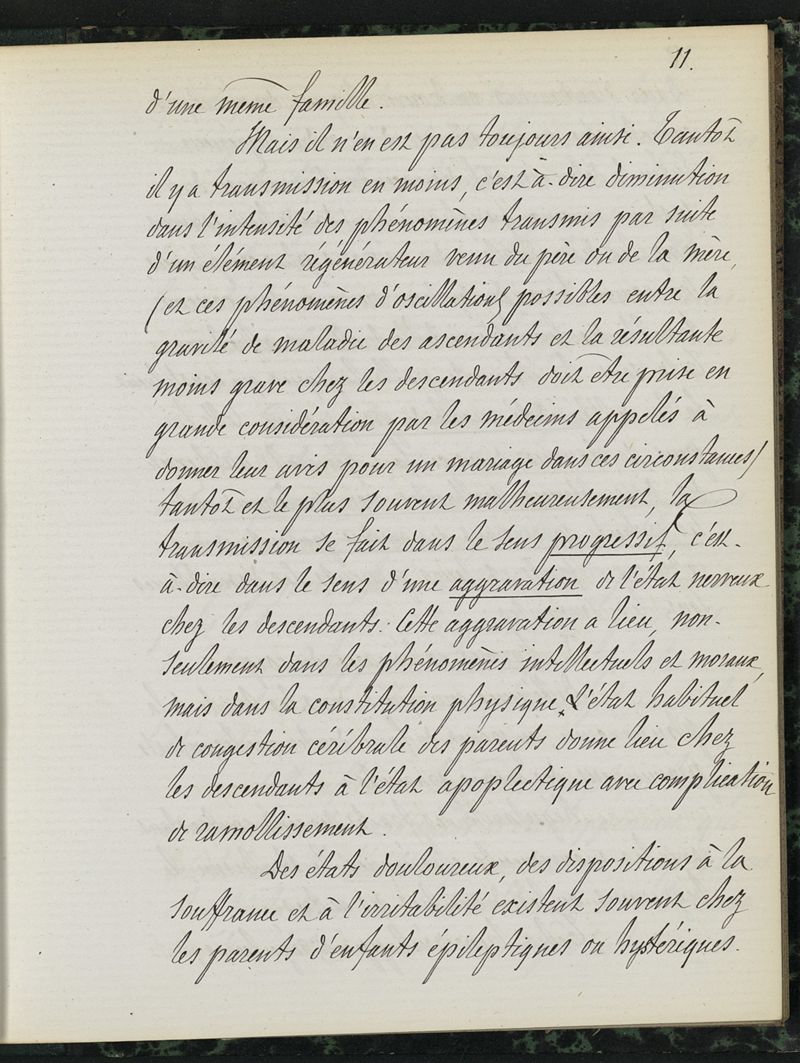 11.
d'une même famille.
Mais il n'en est pas toujours ainsi. Tantôt
il y a transmission en moins, c'est-à-dire diminution
dans l'intensité des phénomènes transmis par suite
d'un élément régénérateur venu du père ou de la mère,
(et ces phénomènes d'oscillations possibles entre la
gravité de maladie des ascendants et la résultante
moins grave chez les descendants doit être prise en
grande considération par les médecins appelés à
donner leur avis pour un mariage dans ces circonstances)
tantôt et le plus souvent malheureusement, la
transmission se fait dans le sens progressif, c'est-
à-dire dans le sens d'une aggravation de l'état nerveux
chez les descendants. Cette aggravation a lieu, non-
seulement dans les phénomènes intellectuels et moraux,
mais dans la constitution physique. L'état habituel
de congestion cérébrale des parents donne lieu chez
les descendants à l'état apoplectique avec complication
de ramollissement.
Des états douloureux, des dispositions à la
souffrance et à l'irritabilité existent souvent chez
les parents d'enfants épileptiques ou hystériques.